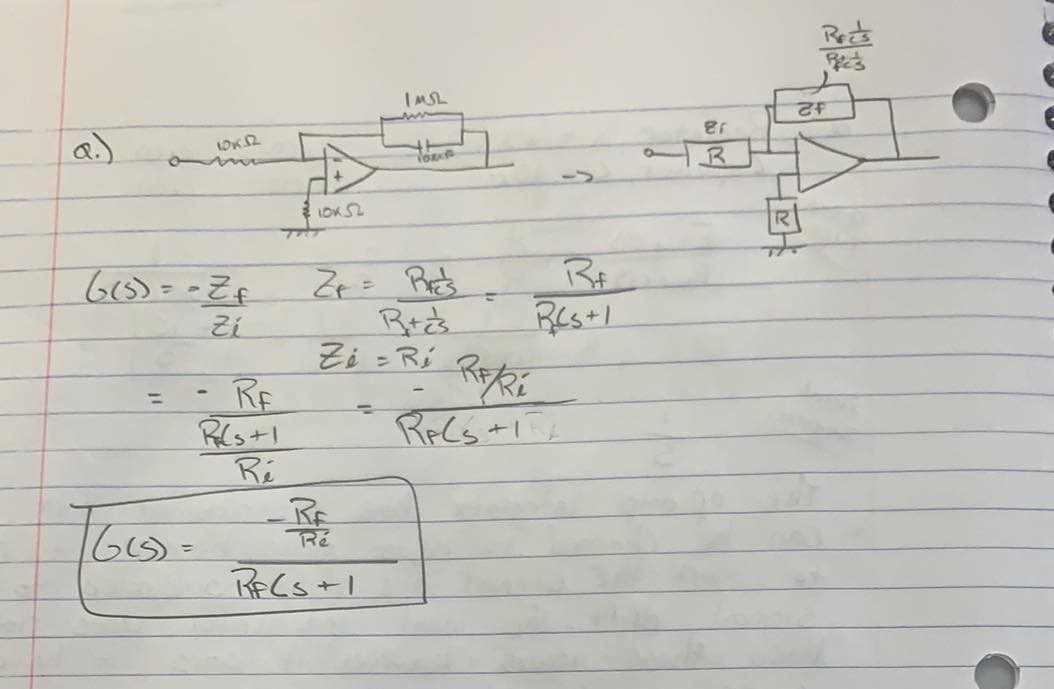 Q.)
10KΩ
1MΩ
-
+
10KΩ
->
Zi
R
Rf 1/cs / Rf+1/cs
Zf
R
G(s) = -Zf/Zi   Zf = Rf 1/cs / Rf+1/cs = Rf / RfCs+1
Zi = Ri
= - Rf / RfCs+1 / Ri = - Rf/Ri / RfCs+1
G(s) = -Rf/Ri / RfCs+1